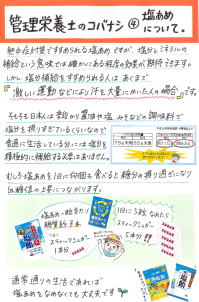 管理栄養士のコバナシ④ 塩あめについて。
熱中症対策ですすめられる塩あめですが、塩分とミネラルの
補給という意味では確かにある程度の効果が期待できます。
しかし 塩分補給をすすめられる人はあくまで
『激しい運動などにより汗を大量にかいた人の場合』です。
そもそも日本人は普段から醤油や塩、みそなどの調味料で
塩分を摂りすぎているくらいなので
普通に生活している分には塩分を
積極的に補給する必要はありません。
むしろ塩あめを1日に何個も食べると糖分の摂り過ぎになり
血糖値の上昇につながります。
塩あめ一粒当たり
糖質約3g
スティックシュガー
1本分
1日に5粒なめたら
スティックシュガー
5本分!!
通常通りの生活であれば
塩あめをなめなくても大丈夫です